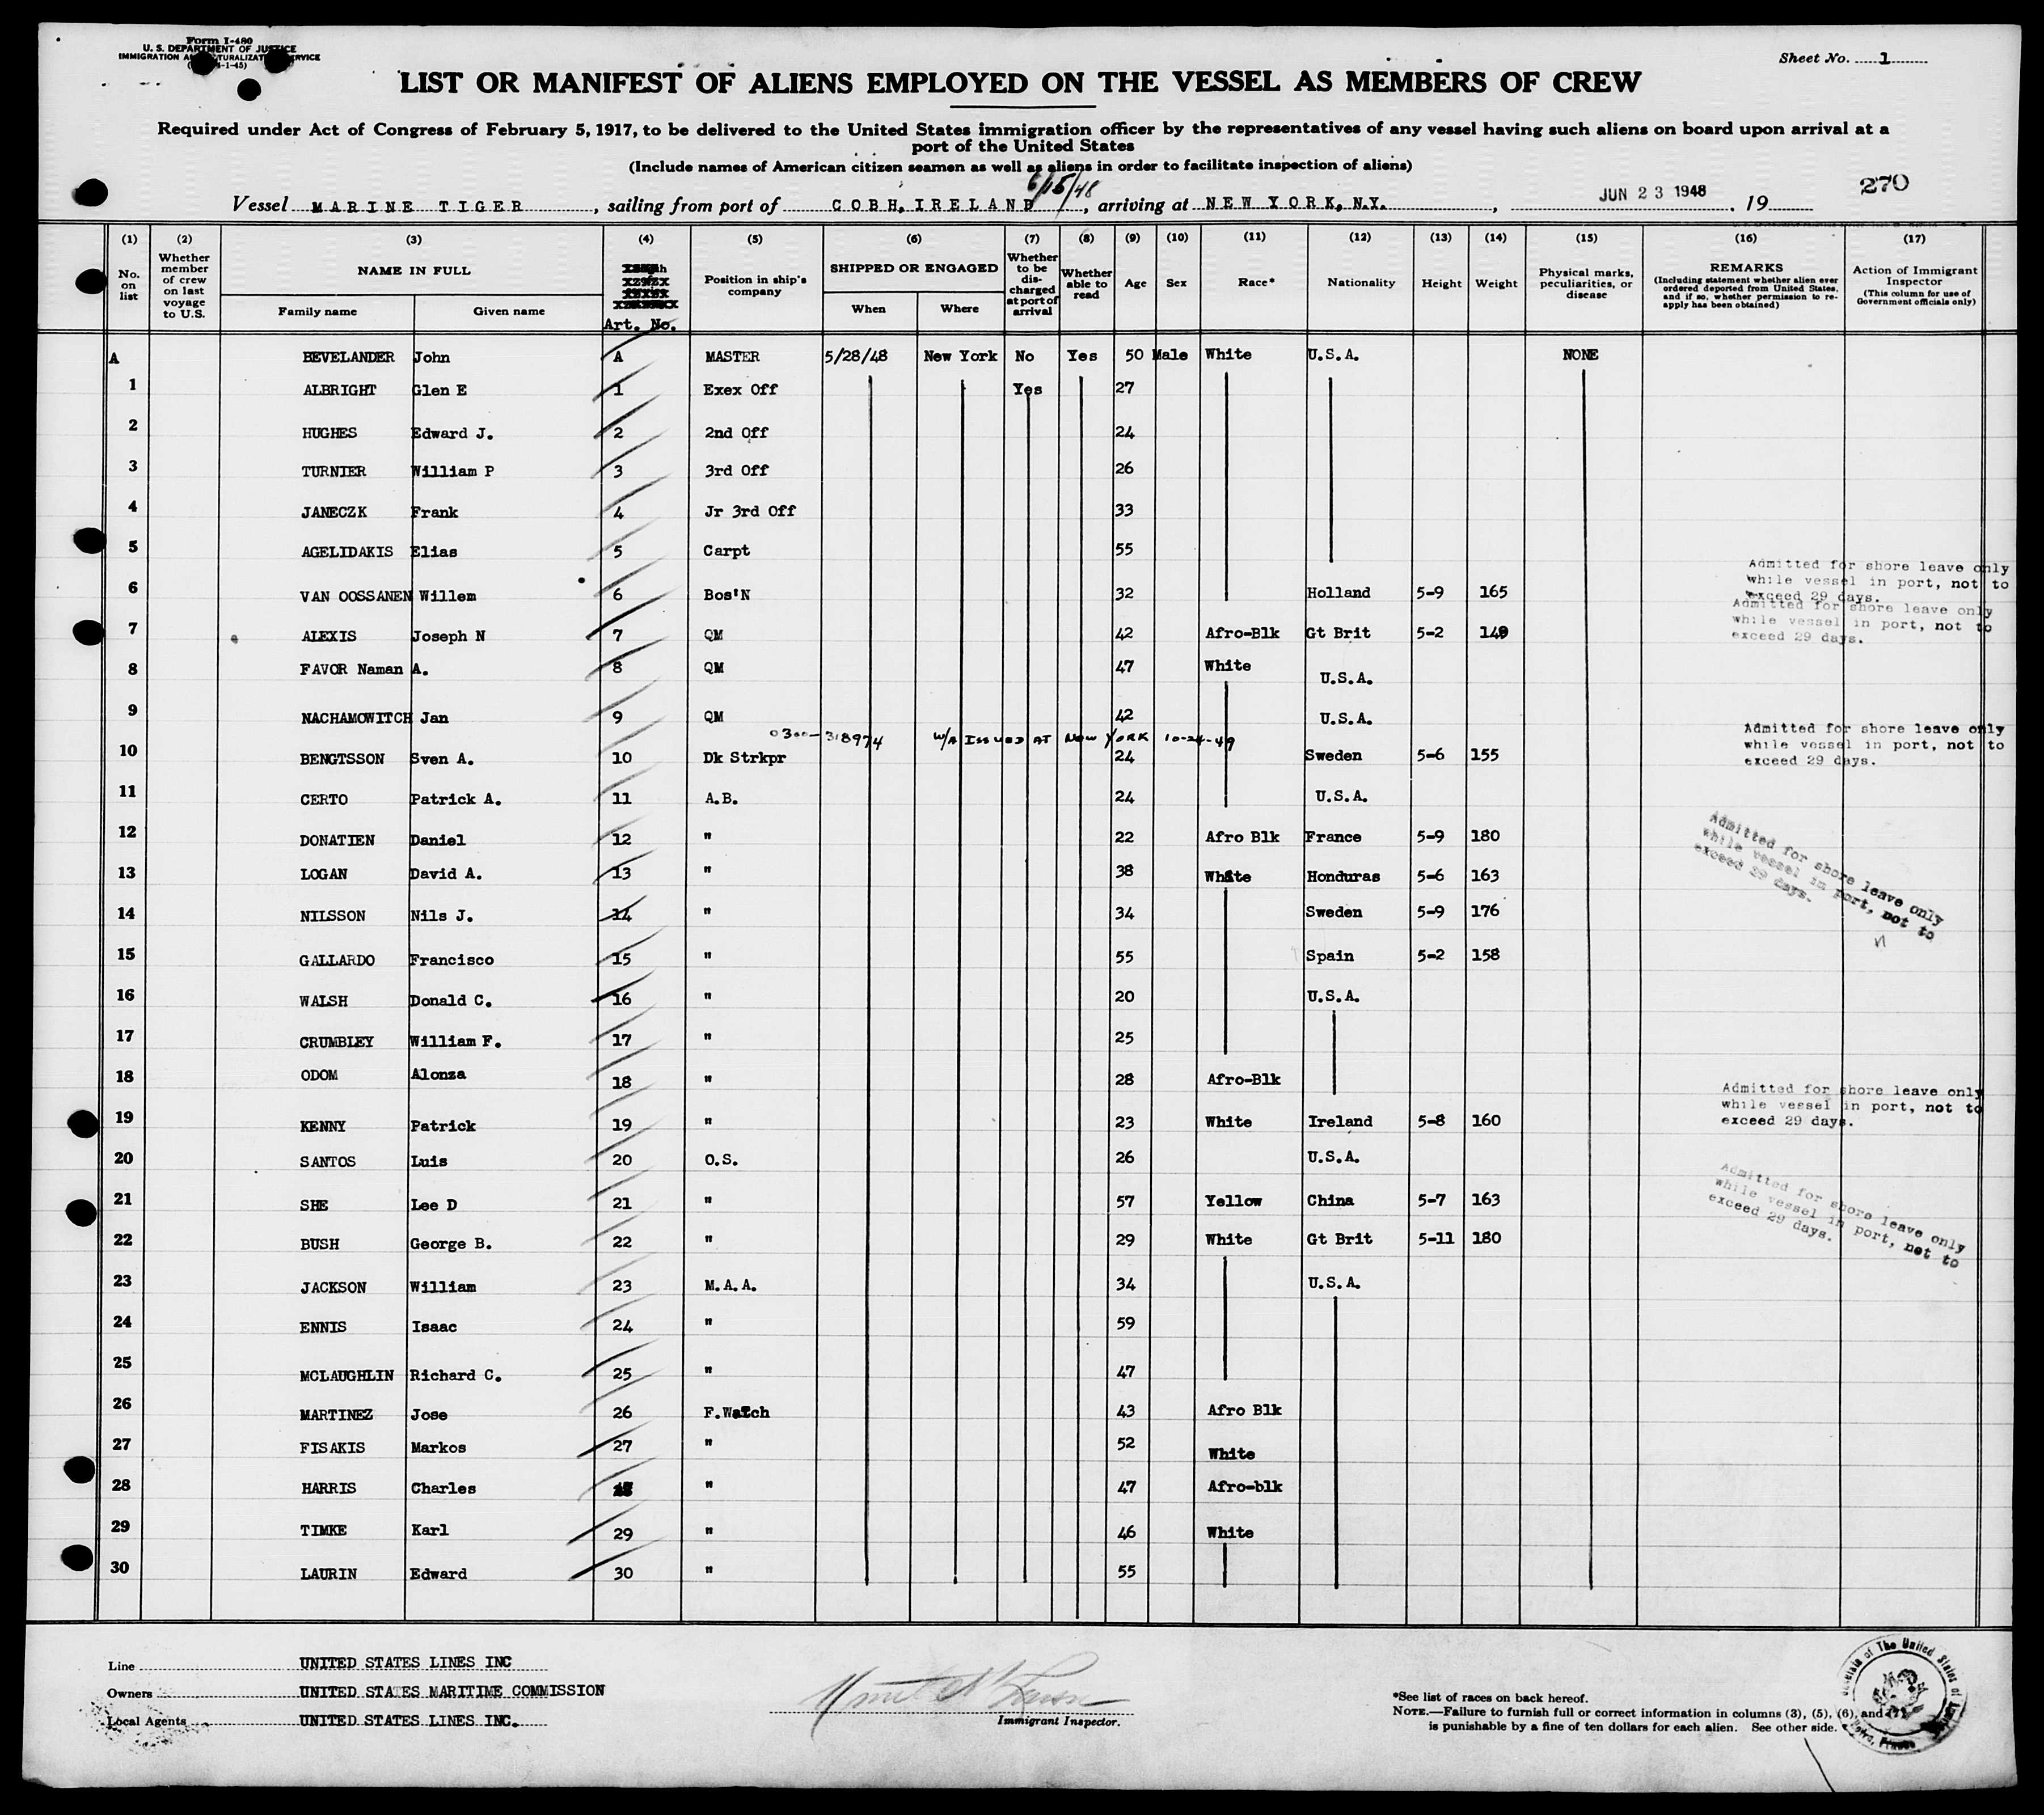 Form I-480
U. S. DEPARTMENT OF JUSTICE
IMMIGRATION AND NATURALIZATION SERVICE
Sheet No. 1
LIST OR MANIFEST OF ALIENS EMPLOYED ON THE VESSEL AS MEMBERS OF CREW
Required under Act of Congress of February 5, 1917, to be delivered to the United States immigration officer by the representatives of any vessel having such aliens on board upon arrival at a
port of the United States
(Include names of American citizen seamen as well as aliens in order to facilitate inspection of aliens)
6/15/48
270
Vessel MARINE TIGER, sailing from port of COBH, IRELAND, arriving at NEW YORK, N.Y., JUN 23 1948, 19
(1) (2) (3) (4) (5) (6) (7) (8) (9) (10) (11) (12) (13) (14) (15) (16) (17)
No. on list
Whether member of crew on last voyage to U.S.
NAME IN FULL
Family name Given name
Art. No.
Position in ship's company
SHIPPED OR ENGAGED
When Where
Whether to be discharged at port of arrival
Whether able to read
Age
Sex
Race*
Nationality
Height
Weight
Physical marks, peculiarities, or disease
REMARKS
(Including statement whether alien ever ordered deported from United States, and if so, whether permission to reapply has been obtained)
Action of Immigrant Inspector
(This column for use of Government officials only)
A BEVELANDER John A MASTER 5/28/48 New York No Yes 50 Male White U.S.A. NONE
1 ALBRIGHT Glen E 1 Exex Off Yes 27
2 HUGHES Edward J. 2 2nd Off 24
3 TURNIER William P 3 3rd Off 26
4 JANECZK Frank 4 Jr 3rd Off 33
5 AGELIDAKIS Elias 5 Carpt 55
6 VAN OOSSANEN Willem 6 Bos'N 32 Holland 5-9 165
Admitted for shore leave only
while vessel in port, not to
exceed 29 days.
7 ALEXIS Joseph N 7 QM 42 Afro-Blk Gt Brit 5-2 149
Admitted for shore leave only
while vessel in port, not to
exceed 29 days.
8 FAVOR Naman A. 8 QM 47 White U.S.A.
9 NACHAMOWITCH Jan 9 QM 42 U.S.A.
0300-318974 W/A ISSUED AT NEW YORK 10-24-49
10 BENGTSSON Sven A. 10 Dk Strkpr 24 Sweden 5-6 155
Admitted for shore leave only
while vessel in port, not to
exceed 29 days.
11 CERTO Patrick A. 11 A.B. 24 U.S.A.
12 DONATIEN Daniel 12 " 22 Afro Blk France 5-9 180
13 LOGAN David A. 13 " 38 White Honduras 5-6 163
Admitted for shore leave only
while vessel in port, not to
exceed 29 days.
14 NILSSON Nils J. 14 " 34 Sweden 5-9 176
15 GALLARDO Francisco 15 " 55 Spain 5-2 158
16 WALSH Donald C. 16 " 20 U.S.A.
17 CRUMBLEY William F. 17 " 25
18 ODOM Alonza 18 " 28 Afro-Blk
19 KENNY Patrick 19 " 23 White Ireland 5-8 160
Admitted for shore leave only
while vessel in port, not to
exceed 29 days.
20 SANTOS Luis 20 O.S. 26 U.S.A.
21 SHE Lee D 21 " 57 Yellow China 5-7 163
Admitted for shore leave only
while vessel in port, not to
exceed 29 days.
22 BUSH George B. 22 " 29 White Gt Brit 5-11 180
23 JACKSON William 23 M.A.A. 34 U.S.A.
24 ENNIS Isaac 24 " 59
25 MCLAUGHLIN Richard C. 25 " 47
26 MARTINEZ Jose 26 F.Watch 43 Afro Blk
27 FISAKIS Markos 27 " 52 White
28 HARRIS Charles " 47 Afro-blk
29 TIMKE Karl 29 " 46 White
30 LAURIN Edward 30 " 55
Line UNITED STATES LINES INC
Owners UNITED STATES MARITIME COMMISSION
Local Agents UNITED STATES LINES INC.
Immigrant Inspector.
*See list of races on back hereof.
NOTE.—Failure to furnish full or correct information in columns (3), (5), (6), and (7)
is punishable by a fine of ten dollars for each alien. See other side.
of The United States of
France